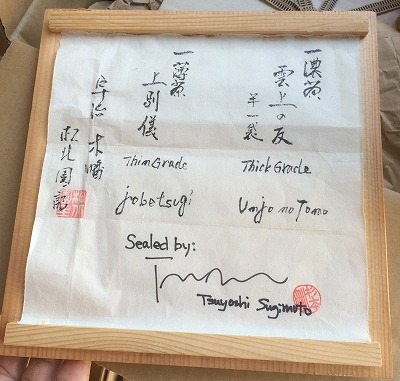 一濃茶
雲上の友
半一袋
Thick Grade
Unjo no Tomo
一薄茶
上別儀
Thin Grade
jobetsugi
宇治 木幡
松北園
Sealed by:
Tsuyoshi Sugimoto